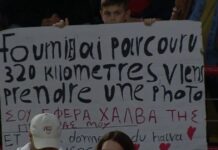 Fournidi parcouru
320 kilometres viens
prendre une photo
ΣΟΥ ΕΦΕΡΑ ΧΑΛΒΑ ΤΗΣ
ΜΟΥ
du halva